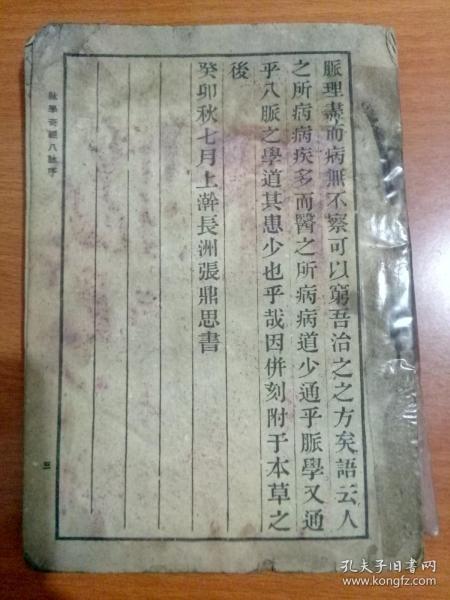 脈理盡而病無不察可以窮吾治之之方矣語云人
之所病病疾多而醫之所病病道少通乎脈學又通
乎八脈之學道其患少也乎哉因併刻附于本草之
後
癸卯秋七月上澣長洲張鼎思書
脉學奇經八脉序
三
孔夫子旧书网
www.kongfz.com